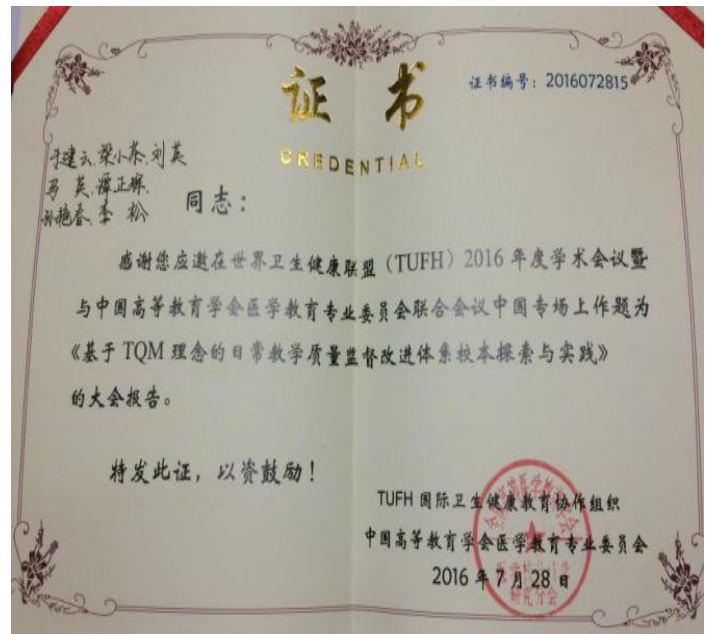 证书
证书编号：2016072815
CREDENTIAL
于建云、梁小茶、刘英
马英、谭正
孙艳春、李松
同志：
感谢您应邀在世界卫生健康联盟（TUFH）2016 年度学术会议暨
与中国高等教育学会医学教育专业委员会联合会议中国专场上作题为
《基于 TQM 理念的日常教学质量监督改进体系校本探索与实践》
的大会报告。
特发此证，以资鼓励！
TUFH 国际卫生健康教育协作组织
中国高等教育学会医学教育专业委员会
2016 年 7 月 28 日